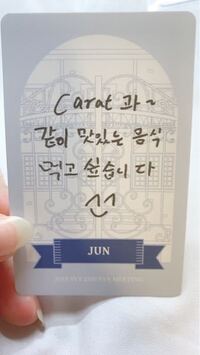 Carat 과~
같이 맛있는 음식
먹고 싶습니다
JUN